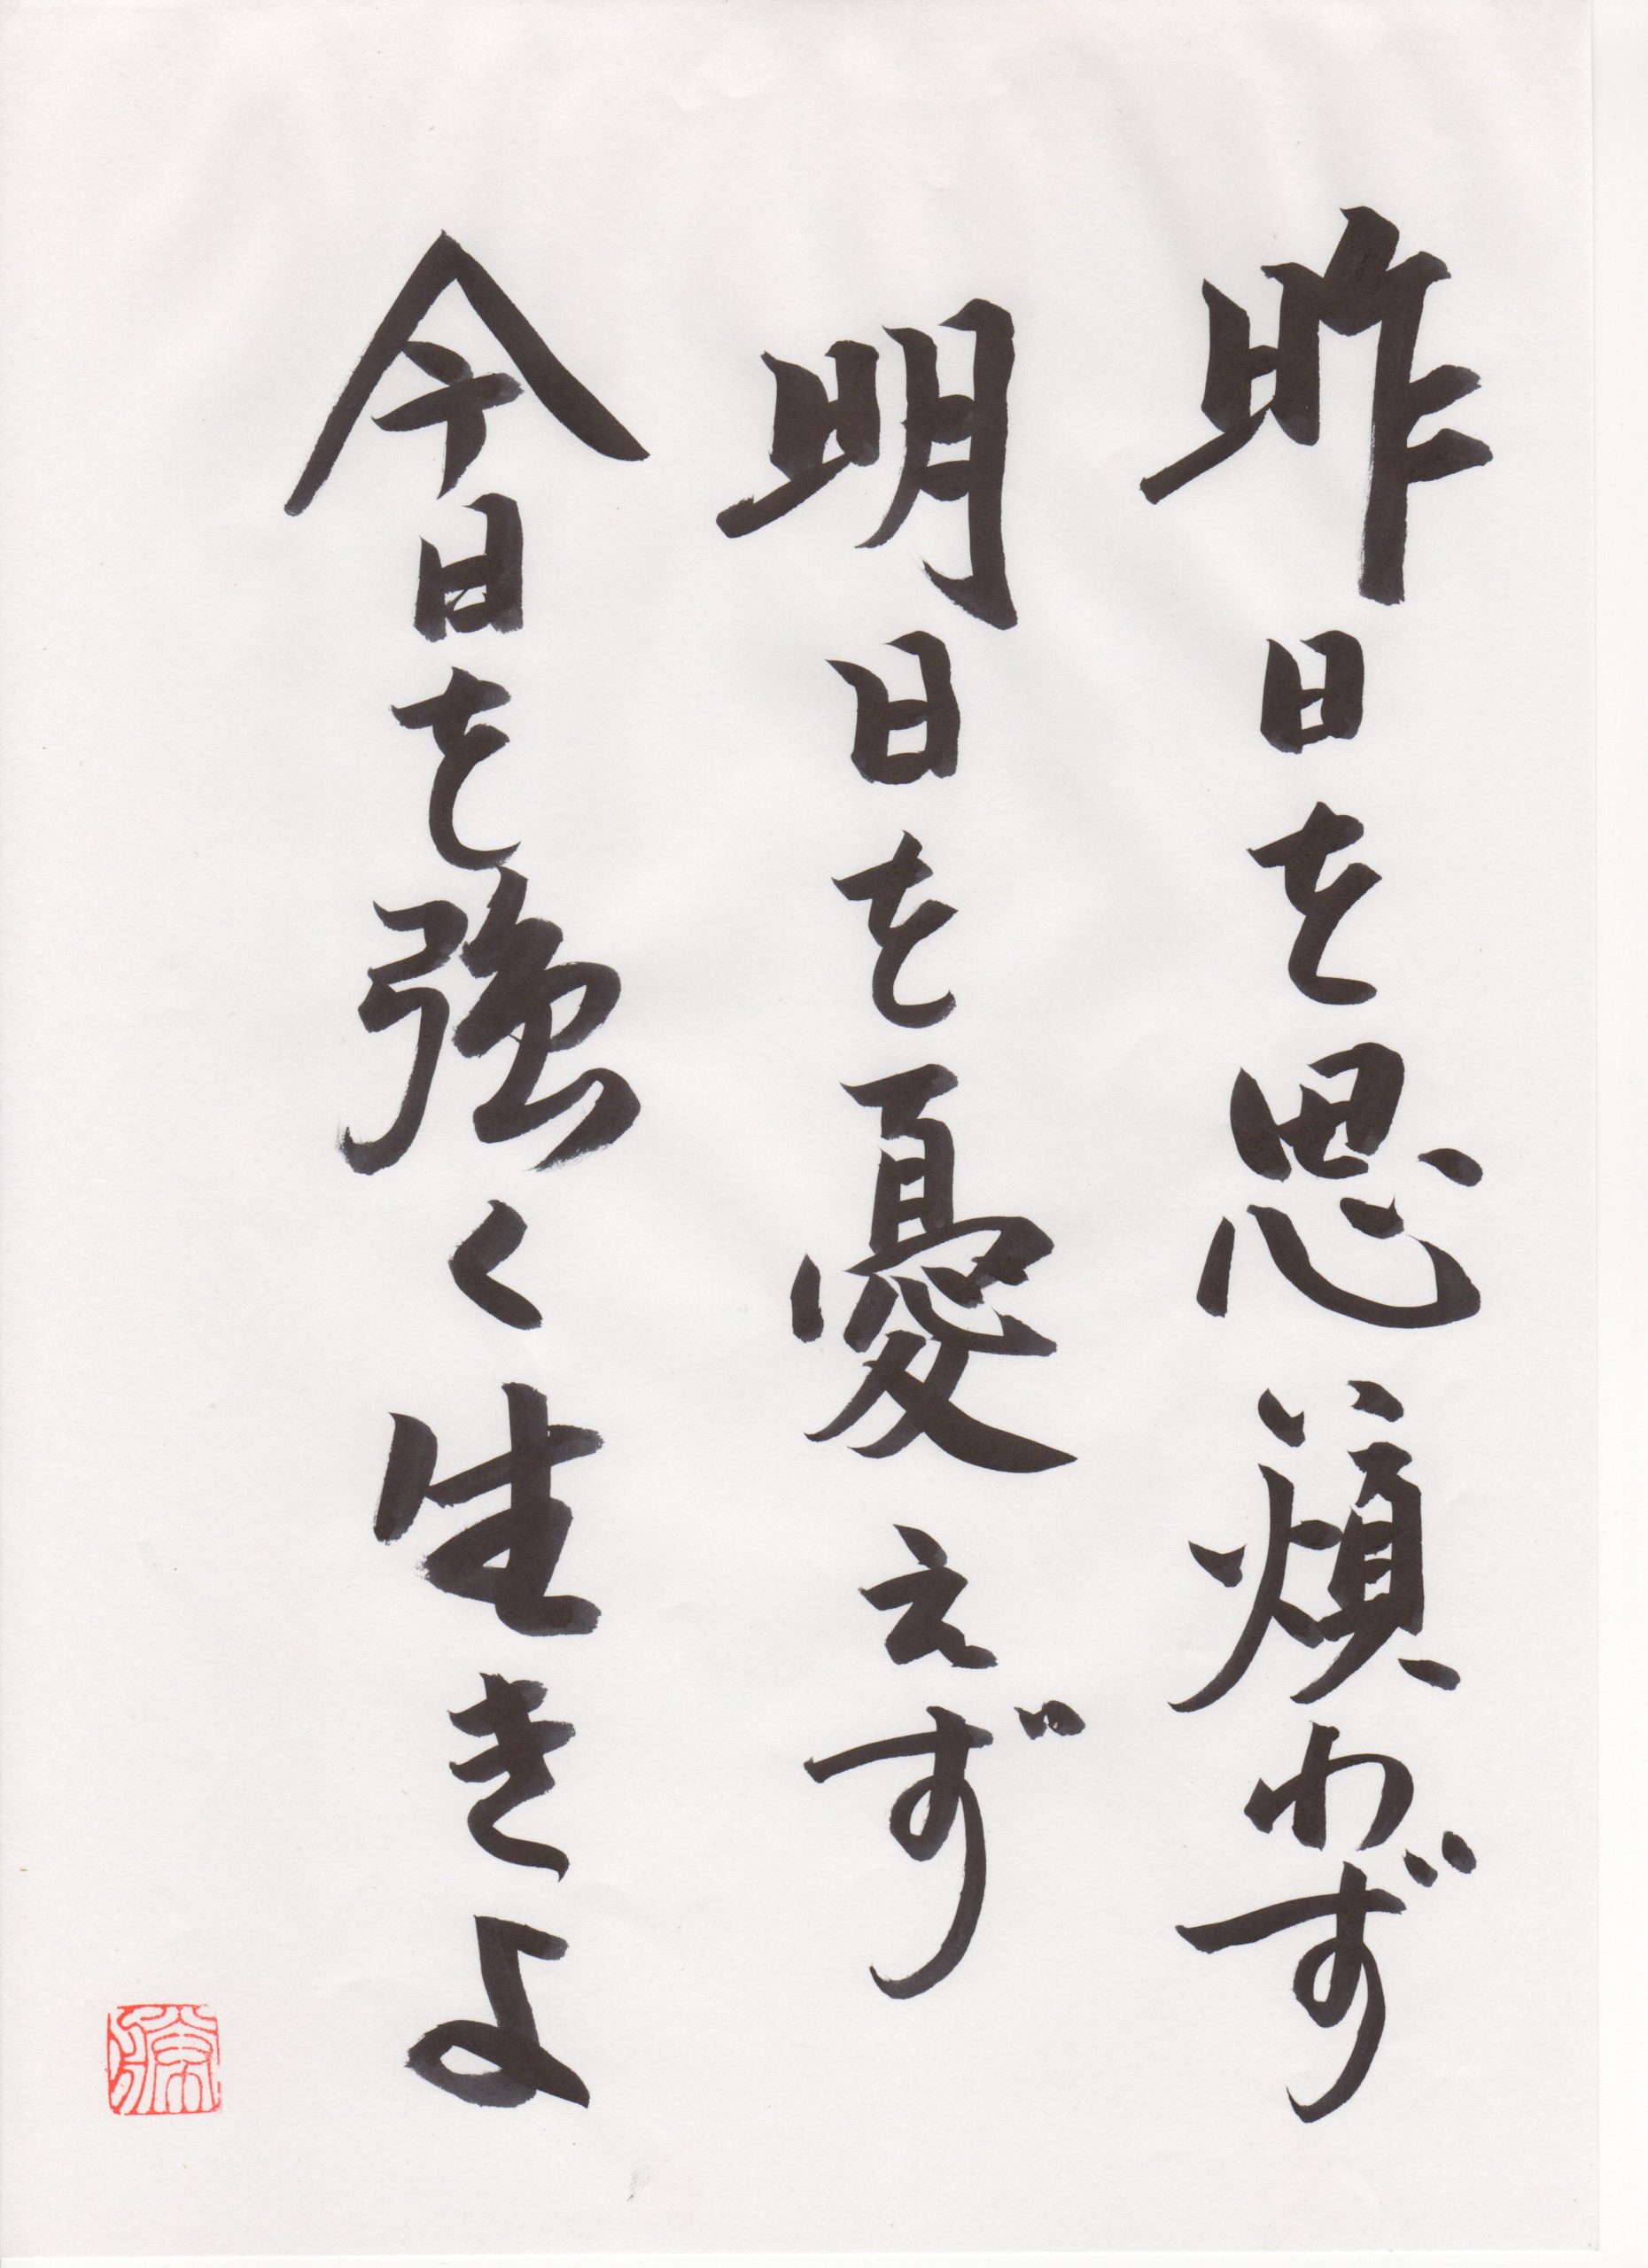 昨日を思い煩わず
明日を憂えず
今日を強く生きよ